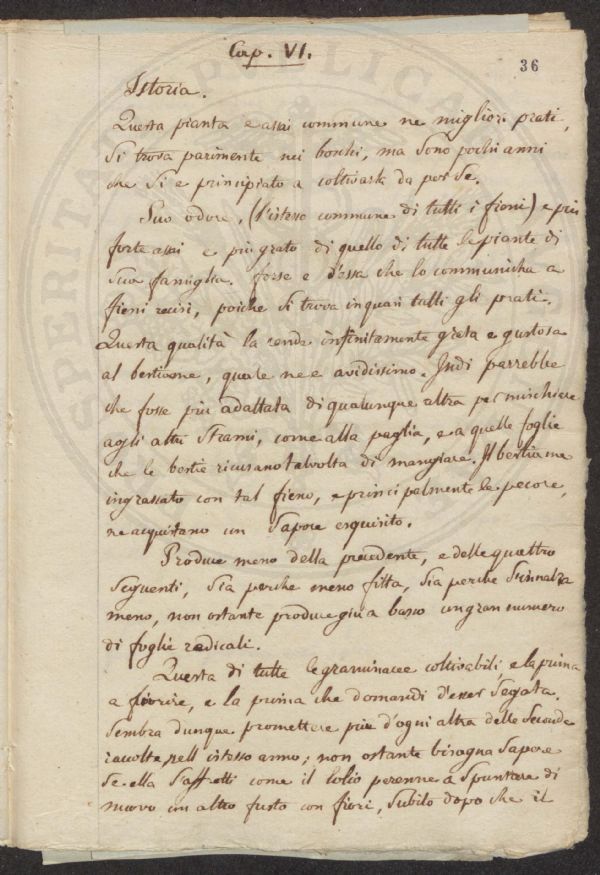 Cap. VI.
36
Istoria.
Questa pianta e assai commune ne migliori prati,
si trova parimente nei boschi, ma sono pochi anni
che si e principiato a coltivarla da per se.
Suo odore, (l'istesso commune di tutti i fieni) e piu
forte assai e piu grato di quello di tutte le piante di
sua famiglia. forse e d'essa che lo communicha a
fieni recisi, poiche si trova in quasi tutti gli prati.
Questa qualità la rende infinitamente grata e gustosa
al bestiame, quale ne e avidissimo. Indi parrebbe
che fosse piu adattata di qualunque altra per mischiare
agli altri strami, come alla paglia, e a quelle foglie
che le bestie ricusano talvolta di mangiare. Il bestiame
ingrassato con tal fieno, e principalmente le pecore,
ne acquistano un sapore esquisito.
Produce meno della precedente, e delle quattro
seguenti, sia perche meno fitta, sia perche s'innalza
meno, non ostante produce giu a basso un gran numero
di foglie radicali.
Questa di tutte le graminacee coltivabili, e la prima
a fiorire, e la prima che domandi d'esser segata.
Sembra dunque promettere piu d'ogni altra delle seconde
raccolte nell istesso anno; non ostante bisogna sapere
se ella s'affretti come il lolio perenne a spuntare di
nuovo un altro fusto con fiori, subito dopo che il